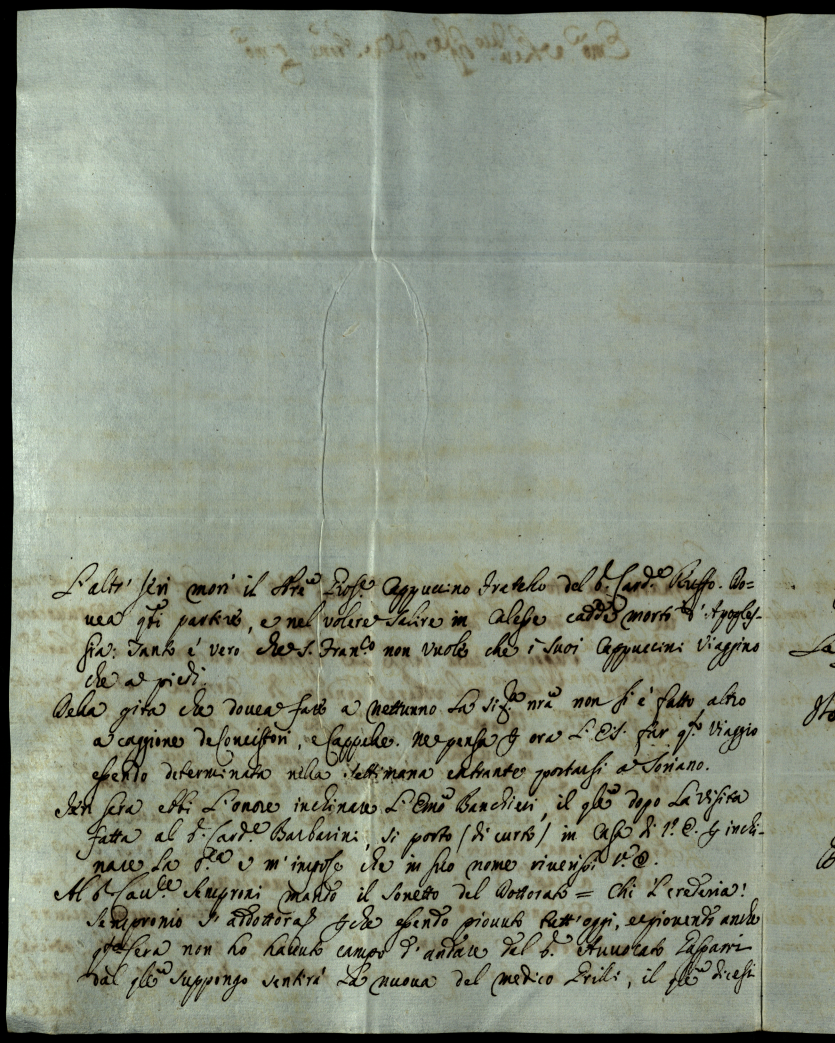 L'altr' jeri morì il Cappuccino Fratello del S.r Card.le Ruffo. Do=
vea q.ti partire, e nel volere salire in Calesse cadde morto d' Apoples-
sia: Tanto é vero che S. Fran.co non vuole che i suoi Cappuccini viaggino
che a piedi.
Della gita che dovea fare a Nettunno La nrã non si é fatto altro
a caggione de Concistori, e Cappelle. Ne pensa p ora L' far q.to viaggio
essendo determinata nella settimana entrante portarsi a Soriano.
Jeri sera ebbi L'onore inchinare L' Emõ Banchieri, il q.le dopo La visita
fatta al S.r Card.le Barbarini, si portò (di curto) in Casa di V. E. p inchi-
nare La e m'impose che in suo nome riverissi V. E.
Al S.r Cav.re Semproni mando il sonetto del Dottorato = Chi L'crederia!
Sempronio s' addottorò perche essendo piovuto tutt'oggi, e piovendo anche
q.ta sera non ho havuto campo d'andare dal S.r Avvocato Gasparri
dal q.le suppongo sentirà La nuova del medico Grilli, il q.le dicesi